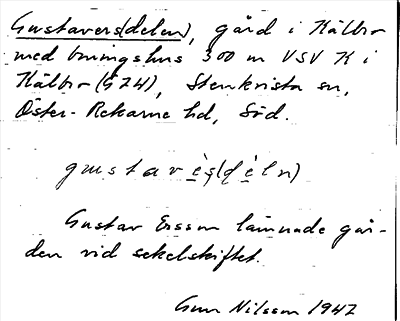 Gustavers(delen), gård i Kälbro
med boningshus 300 m VSV K i
Kälbro (GZH), Stenkvista sn,
Öster-Rekarne hd, Söd.
gustavès(déln)
Gustav Ersson lämnade går-
den vid sekelskiftet.
Gun Nilsson 1947